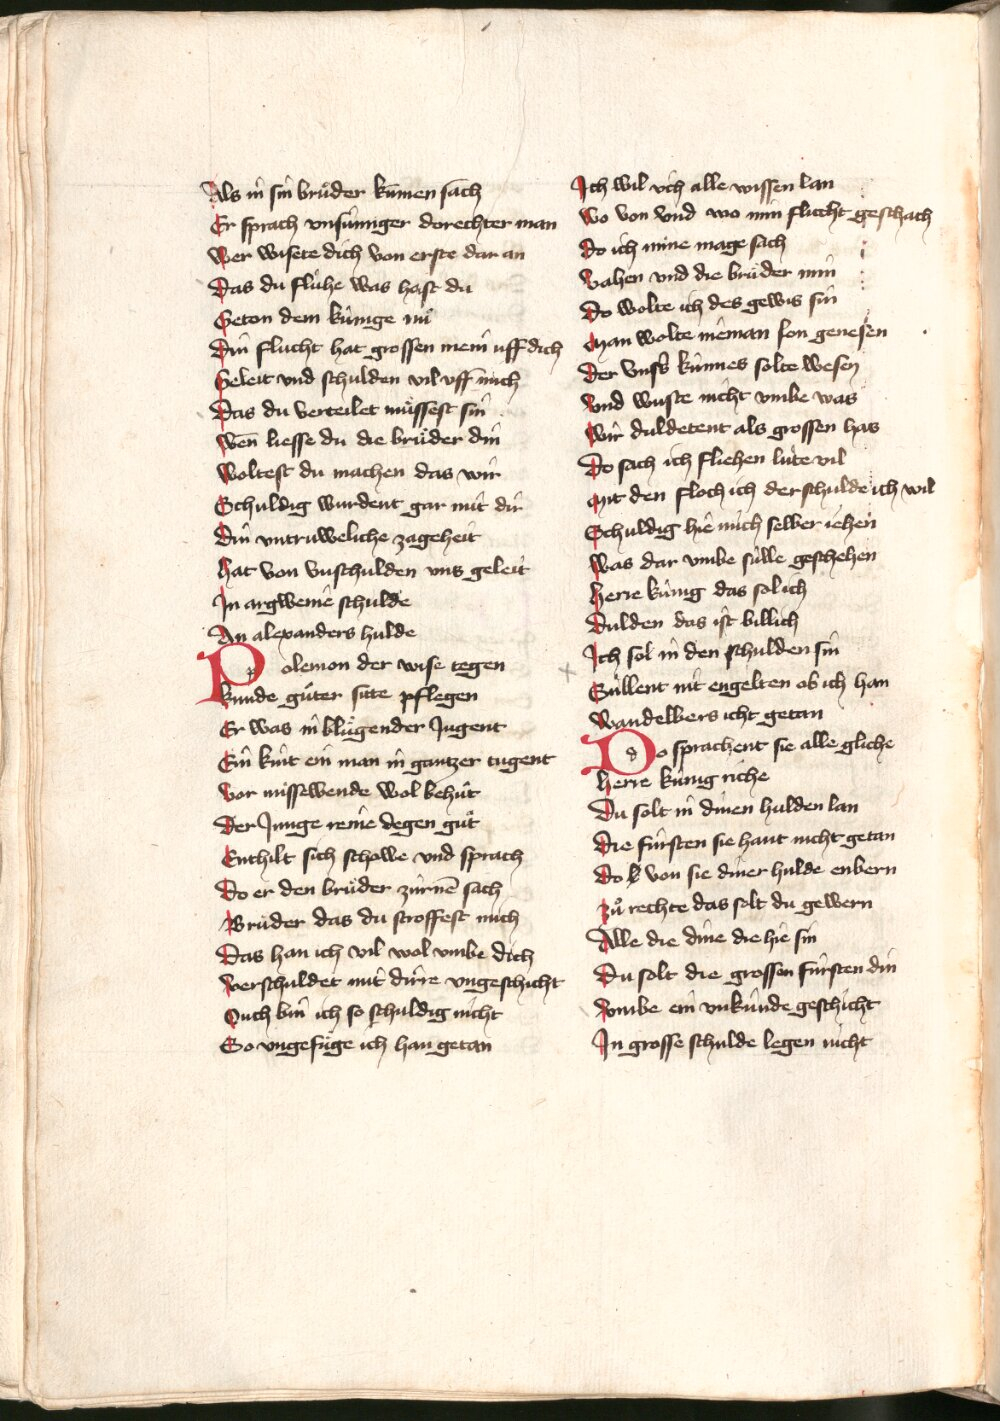 Als in sin brůder kūmen sach
Er sprach vnsinniger dorechter man
Wer wisete dich von erste dar an
Das du flühe was hast du
Geton dem künige nů
Din flucht hat grossen mein uff dich
Geleit vnd schulden vil uff mich
Das du verteilet müssest sin
Wen̄ liesse du die brůder din
Woltest du machen das wir
Schuldig wurdent gar mit dir
Din vntruweliche zageheit
Hat von vnschulden vns geleit
In argwenie schulde
An alexanders hulde
Polemon der wise tegen
Kunde gůter sitte pflegen
Er was in blůgender Jugent
Ein kint ein man in gantzer tugent
Vor missewende wol behůt
Der Junge reine degen gůt
Enthilt sich scholle vnd sprach
Do er den brůder zürnē sach
Brůder das du stroffest mich
Das han ich vil wol vmbe dich
Verschuldet mit dirre vngeschicht
Ouch bin ich so schuldig nicht
So vngefüge ich han getan
Ich wil vch alle wissen lan
Wo von vnd wo min flucht geschach
Do ich mine mage sach
Vahen vnd die brůder min
Do wolte ich des gewis sin
Man wolte nieman lon genesen
Der vnsers künnes solte wesen
Vnd wuste nicht vmbe was
Wir duldetent als grossen has
Do sach ich fliehen lüte vil
Mit den floch ich der schulde ich wil
Schuldig hie mich selber iehen
Was dar vmbe sülle geschehen
Herre künig das sol ich
Dulden das ist billich
Ich sol in den schulden sin
Süllent nit engelten ob ich han
Wandelbers icht getan
Do sprachent sie alle gliche
Herre künig riche
Du solt in dinen hulden lan
Die fürsten sie hant nicht getan
Do von sie diner hulde enbern
Zů rechte das solt du gewern
Alle die dine die hie sin
Du solt die grossen fürsten din
Vmbe ein vnkünde geschicht
In grosse schulde legen nicht